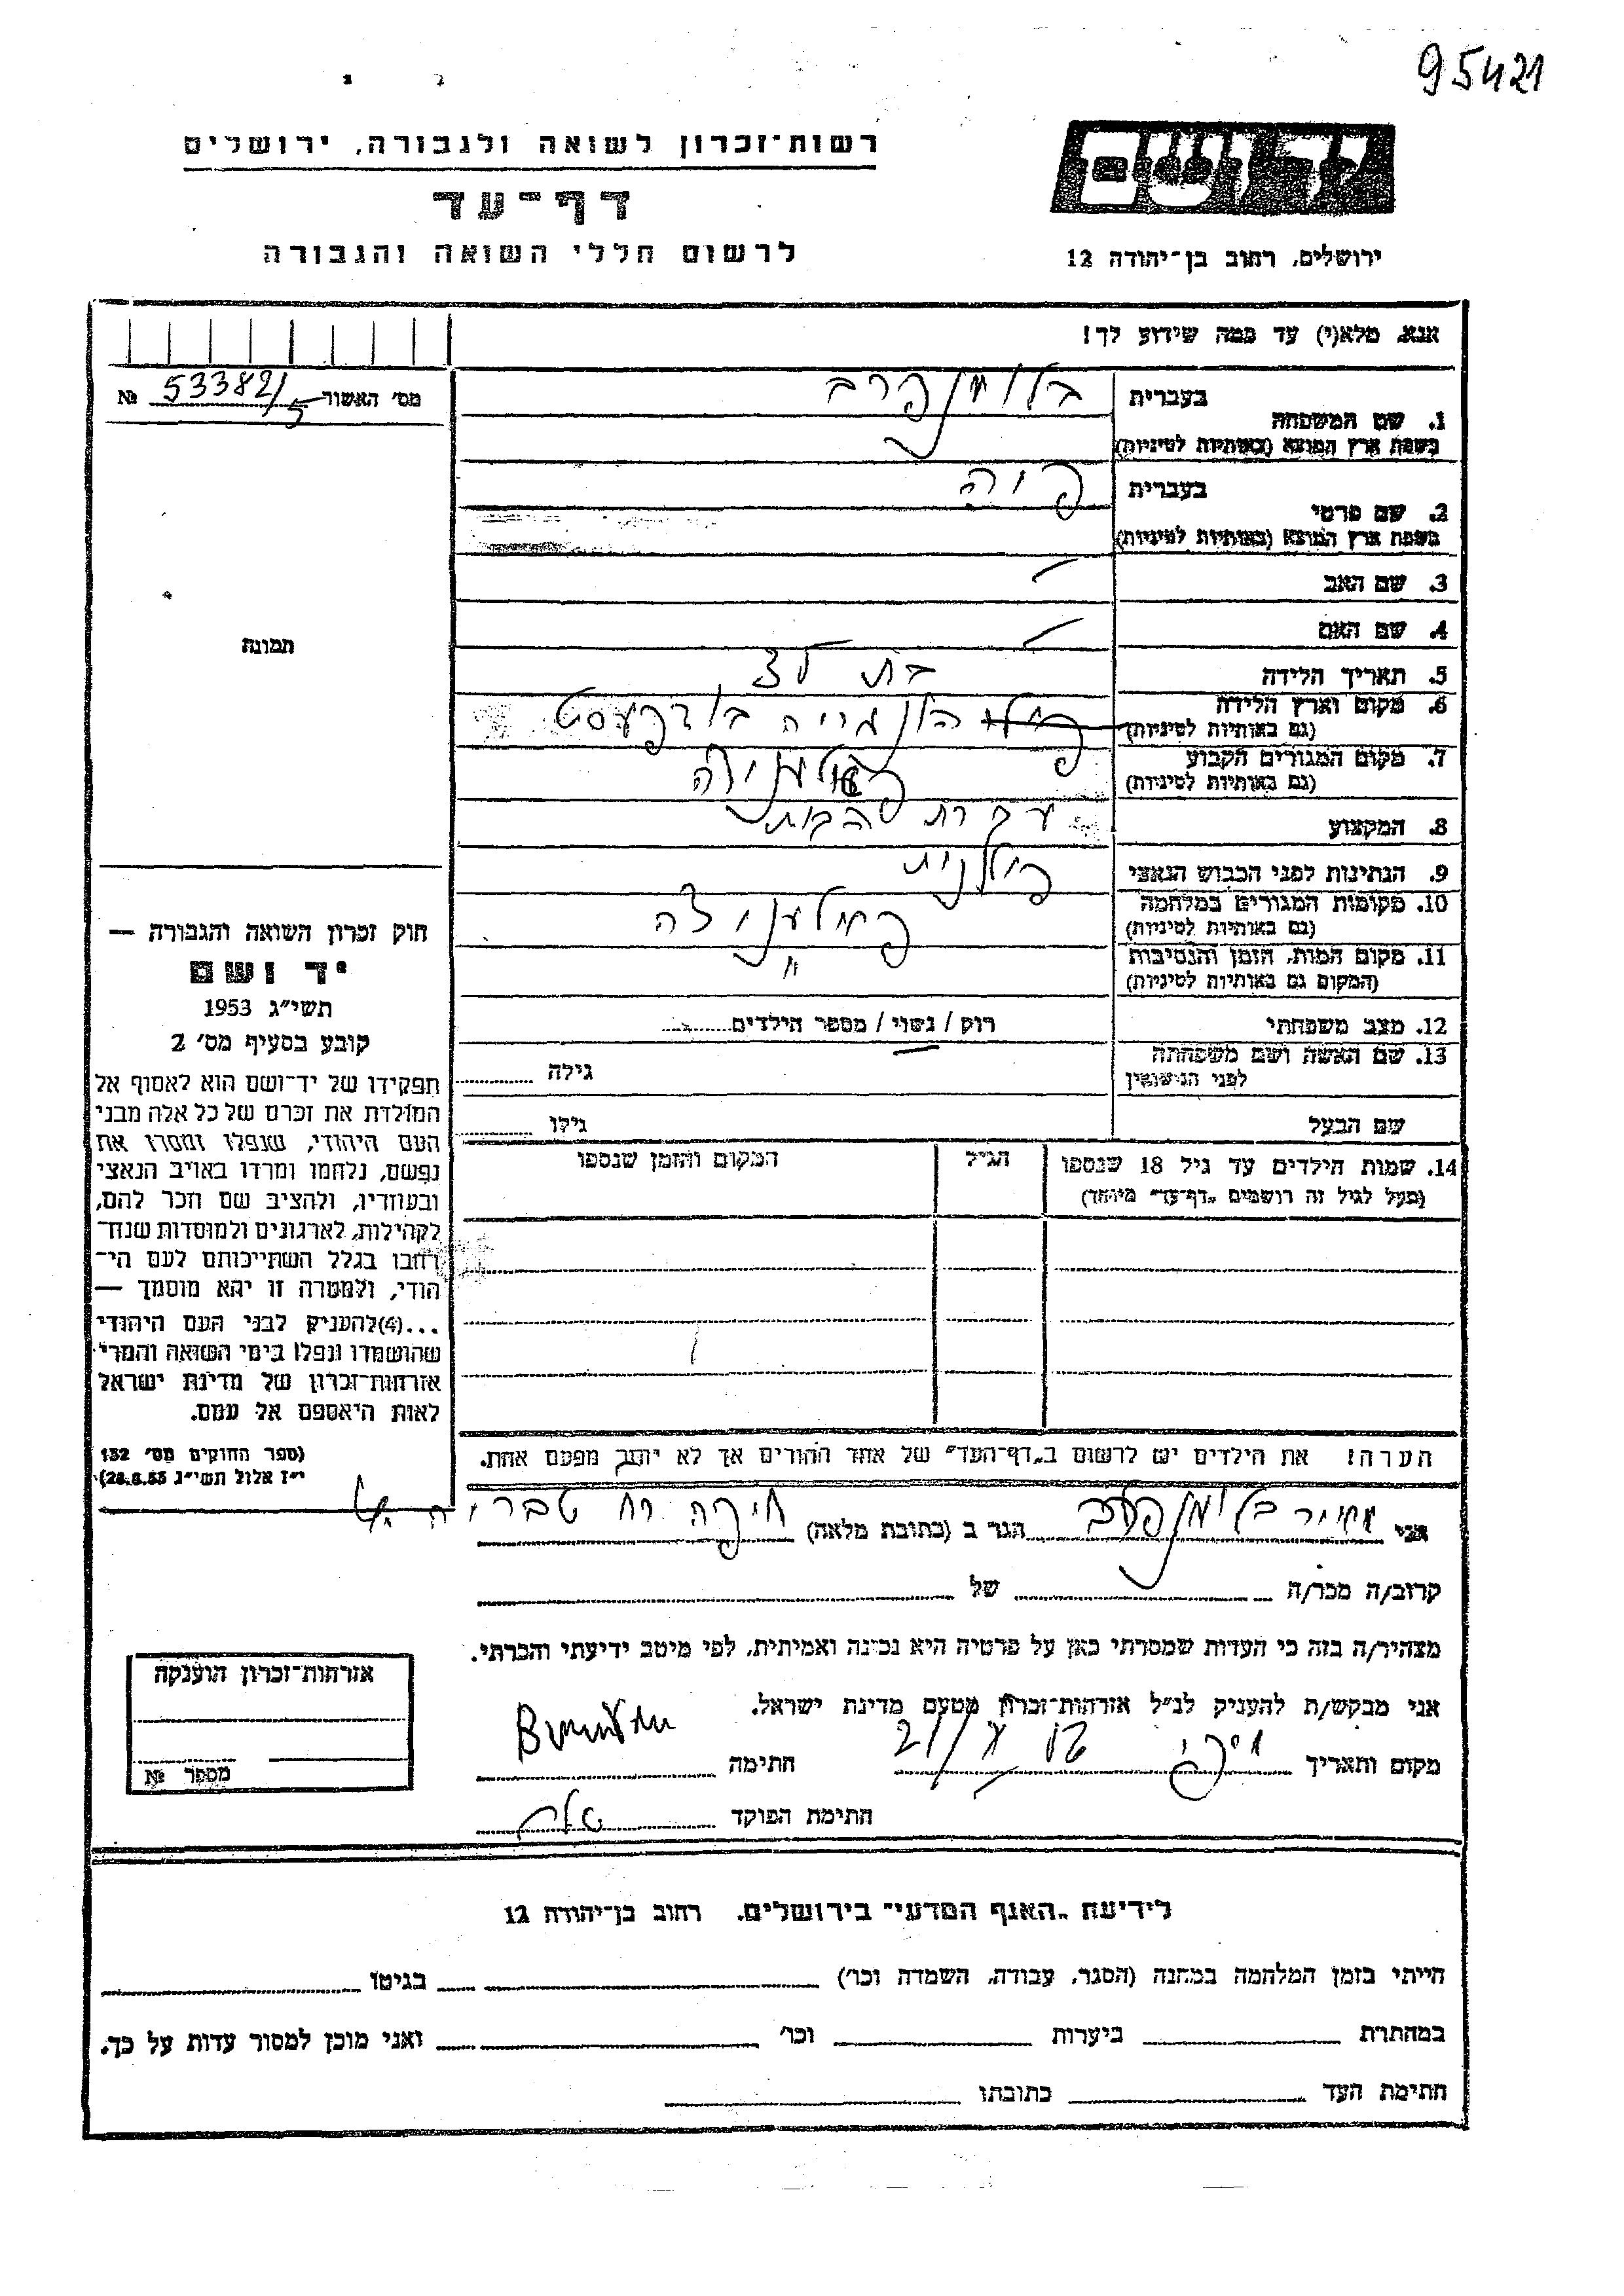 95421
יד ושם
רשות־זכרון לשואה ולגבורה, ירושלים
דף־עד
לרשום חללי השואה והגבורה
ירושלים, רחוב בן־יהודה 12
אנא, מלא(י) עד כמה שידוע לך!
מס' האשור № 533821/5
1. שם המשפחה בעברית
בשפת ארץ המוצא (באותיות לטיניות)
2. שם פרטי בעברית
בשפת ארץ המוצא (באותיות לטיניות)
3. שם האב
4. שם האם
תמונה
5. תאריך הלידה
6. מקום וארץ הלידה בודפעסט
(גם באותיות לטיניות)
7. מקום המגורים הקבוע
(גם באותיות לטיניות)
8. המקצוע
9. הנתינות לפני הכבוש הנאצי פולנית
10. מקומות המגורים במלחמה
(גם באותיות לטיניות)
11. מקום המות, הזמן והנסיבות "
(המקום גם באותיות לטיניות)
12. מצב משפחתי רוק / נשוי / מספר הילדים
13. שם האשה ושם משפחתה
לפני הנישואין גילה
שם הבעל גילו
14. שמות הילדים עד גיל 18 שנספו הגיל המקום והזמן שנספו
(מעל לגיל זה רושמים „דף־עד" מיוחד)
חוק זכרון השואה והגבורה —
יד ושם
תשי"ג 1953
קובע בסעיף מס' 2
תפקידו של יד־ושם הוא לאסוף אל
המולדת את זכרם של כל אלה מבני
העם היהודי, שנפלו ומסרו את
נפשם, נלחמו ומרדו באויב הנאצי
ובעוזריו, ולהציב שם וזכר להם,
לקהילות, לארגונים ולמוסדות שנח־
רבו בגלל השתייכותם לעם הי־
הודי, ולמטרה זו יהא מוסמך —
...(4)להעניק לבני העם היהודי
שהושמדו ונפלו בימי השואה והמרי
אזרחות־זכרון של מדינת ישראל
לאות היאספם אל עמם.
(ספר החוקים מס' 132
י"ז אלול תשי"ג 28.8.53)
הערה! את הילדים יש לרשום ב„דף־העד" של אחד ההורים אך לא יותר מפעם אחת.
אני הגר ב (כתובת מלאה) חיפה רח טבריה
קרוב/ה מכר/ה של
מצהיר/ה בזה כי העדות שמסרתי כאן על פרטיה היא נכונה ואמיתית, לפי מיטב ידיעתי והכרתי.
אני מבקש/ת להעניק לנ"ל אזרחות־זכרון מטעם מדינת ישראל.
מקום ותאריך חתימה
חתימת הפוקד
אזרחות־זכרון הוענקה
מספר №
לידיעת „האגף המדעי" בירושלים. רחוב בן־יהודה 12
הייתי בזמן המלחמה במחנה (הסגר, עבודה, השמדה וכו') בגיטו
במחתרת ביערות וכו' ואני מוכן למסור עדות על כך.
חתימת העד כתובתו